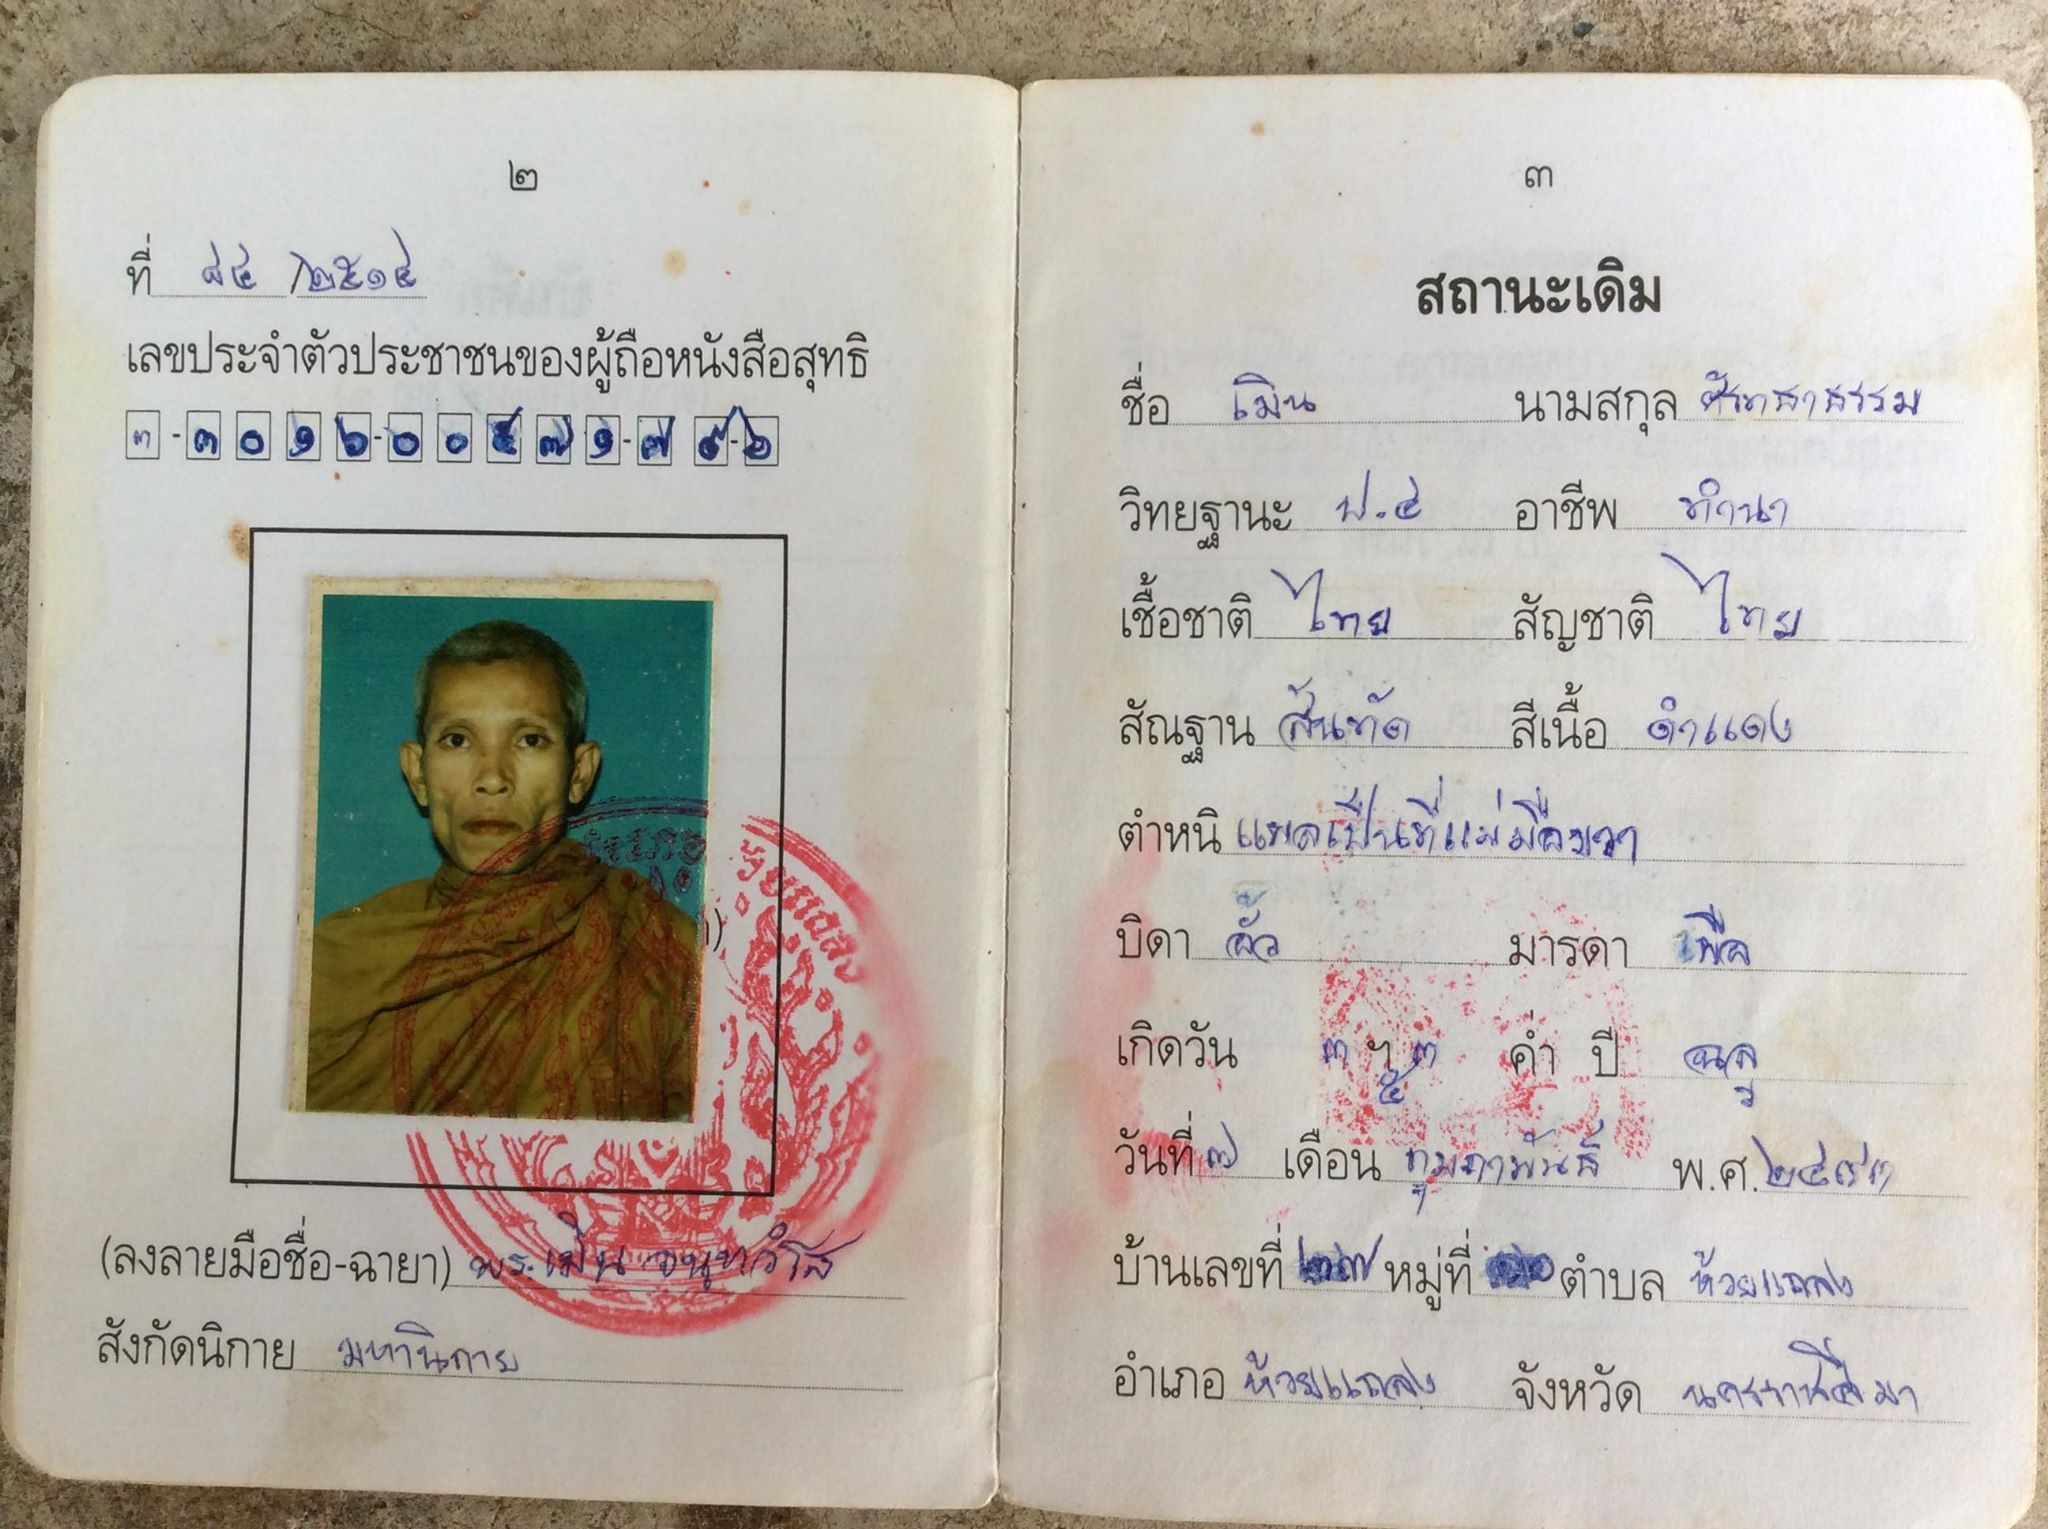 ๒
ที่ ๘๔ /๒๕๑๔
เลขประจำตัวประชาชนของผู้ถือหนังสือสุทธิ
๓-๓๐๑๖-๐๐๔๗๑-๗๙-๖
(ลงลายมือชื่อ-ฉายา) พระเมิน
สังกัดนิกาย มหานิกาย
๓
สถานะเดิม
ชื่อ เมิน นามสกุล
วิทยฐานะ ป.๔ อาชีพ ทำนา
เชื้อชาติ ไทย สัญชาติ ไทย
สัณฐาน สันทัด สีเนื้อ ดำแดง
ตำหนิ แผลเป็นที่แม่มือขวา
บิดา มารดา
เกิดวัน ๓ ฯ ๓ ค่ำ ปี ฉลู
๕
วันที่ ๗ เดือน กุมภาพันธ์ พ.ศ. ๒๔๙๓
บ้านเลขที่ หมู่ที่ ตำบล ห้วยแถลง
อำเภอ ห้วยแถลง จังหวัด นครราชสีมา